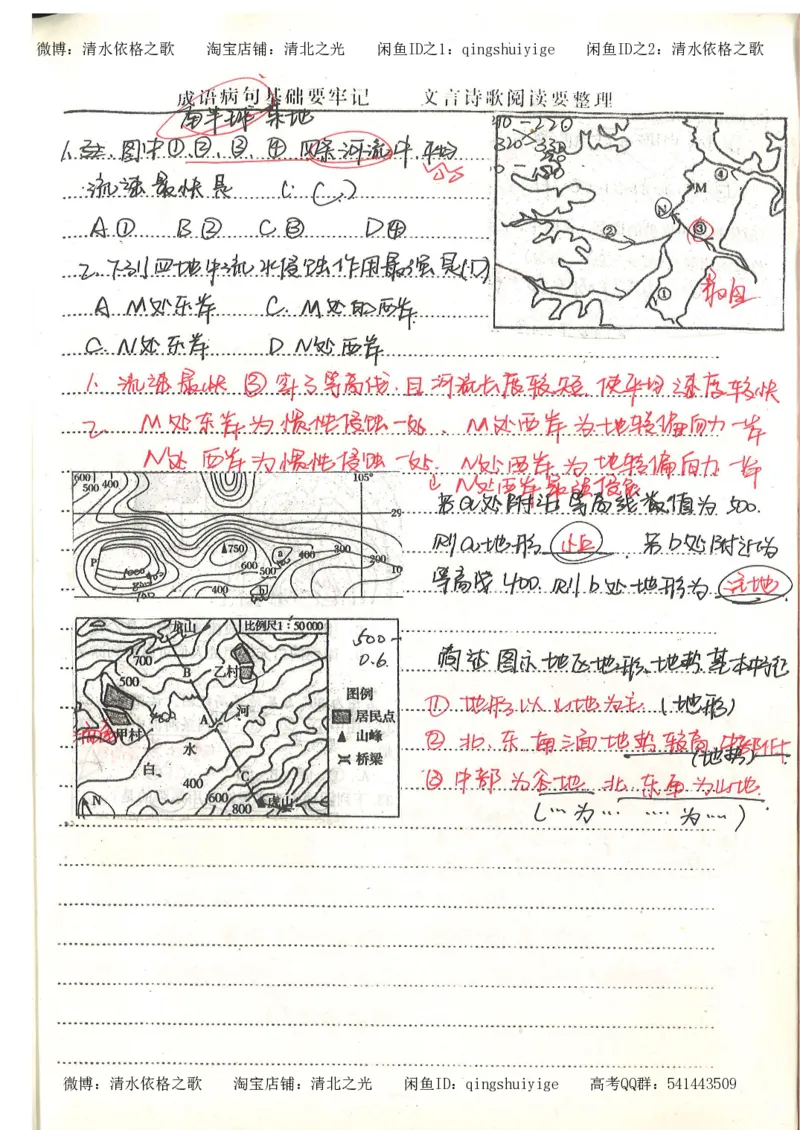 微博：清水依格之歌 淘宝店铺：清北之光 闲鱼ID之1：qingshuiyige 闲鱼ID之2：清水依格之歌
成语病句基础要牢记 文言诗歌阅读要整理
南半球某地
1. 图中①、②、③、④四条河流中，平均
流速最快是 ( C )
A ① B ② C ③ D ④
2. 下列四地中流水侵蚀作用最强是(D)
A. M处东岸 C. M处的西岸
C. N处东岸 D N处西岸
M
N
①
②
③
④
1. 流速最快 ③ 等高线，且河流长度较短，使平均速度较快
2 M处东岸为惯性侵蚀一处，M处西岸为地转偏向力一岸
N处西岸为惯性侵蚀一处，N处西岸为地转偏向力一岸
∴ N处西岸最强侵蚀
600
500
400
105°
29
P
750
a
400
300
200
600
500
400
b
若a处附近等高线数值为500.
则a地形 山丘 . 若b处附近为
等高线400. 则b处地形为 洼地
龙山
比例尺1：50000
700
500
B
乙村
A
河
甲村
水
白
400
600
800
C
虎山
N
图例
居民点
山峰
桥梁
500
0.6
简述图示地区地形、地势基本特征
① 地形以山地为主 (地形)
② 北、东南三面地势较高，中部低
(地势)
③ 中部为谷地，北、东南为山地.
(…为… …为…)
微博：清水依格之歌 淘宝店铺：清北之光 闲鱼ID：qingshuiyige 高考QQ群：541443509